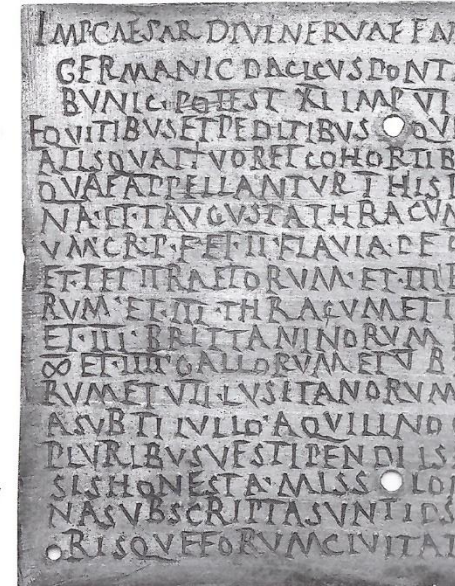 IMP CAESAR DIVI NERVAE F
GERMANIC DACICVS PONT
BVNIC POTEST XI IMP VI
EQVITIBVS ET PEDITIBVS QV
ALIS QVATTVOR ET COHORTIB
QVAE APPELLANTVR I HIS
NA·ET·I AVGVSTA THRACVM
VM C R·P·F·ET·II·FLAVIA·P F
ET·I ET II RAETORVM·ET·III
RVM·ET·III·THRACVM ET
ET·III·BRITTANNORVM
∞ ET·IIII GALLORVM ET V B
RVM ET VII LVSITANORVM
A SVB TI IVLIO·AQVILINO
PLVRIBVSVE STIPENDIIS
SIS HONESTA·MISS IO
NA SVBSCRIPTA SVNT
RISQVE EORVM CIVITAT